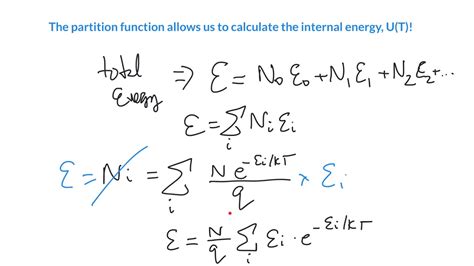 The partition function allows us to calculate the internal energy, U(T)!
total Energy ⇒ Ɛ = N₀Ɛ₀ + N₁Ɛ₁ + N₂Ɛ₂ + ...
Ɛ = ∑ᵢ NᵢƐᵢ
Ɛ = Nᵢ = ∑ᵢ N e^(-Ɛi/kT) / q × Ɛᵢ
Ɛ = N/q ∑ᵢ Ɛᵢ · e^(-Ɛi/kT)